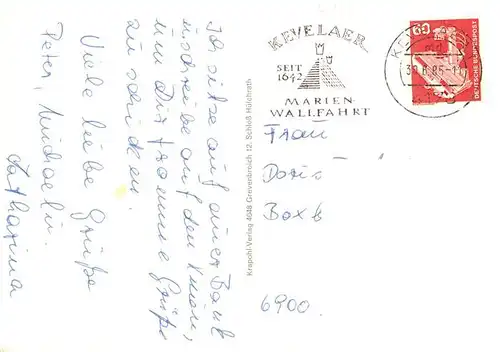 Ich sitze auf einer Bank
u. schreibe auf den Knien,
um Dir fromme Grüße
zu schicken.
Viele liebe Grüße
Peter, Michael u.
Katharina
Krapohl-Verlag 4048 Grevenbroich 12, Schloß Hülchrath
KEVELAER
SEIT
1642
MARIEN-
WALLFAHRT
60
DEUTSCHE BUNDESPOST
Frau
Doris
6900